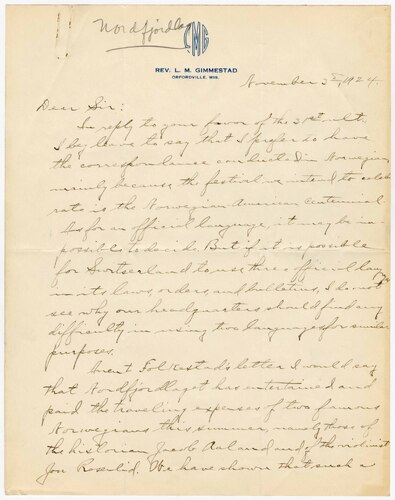 Nordfjordlag
LMG
REV. L. M. GIMMESTAD
ORFORDVILLE, WIS.
November 3rd, 1924.
Dear Sir:
In reply to your favor of the 31st ult.
I beg leave to say that I prefer to have
the correspondence conducted in Norwegian
mainly because the festival we intend to celeb-
rate is the Norwegian American Centennial
As for an official language, it may be im-
possible to decide. But if it is possible
for Switzerland to use three official lang
in its laws, orders, and bulletins, I do not
see why our headquarters should find any
difficulty in using two languages for similar
purposes.
Anent Folkestad's letter I would say
that Nordfjordlaget has entertained and
paid the traveling expenses of two famous
Norwegians this summer, namely those of
the historian Jacob Aaland and of the violinist
Jon Rosenlid. We have shown that such a